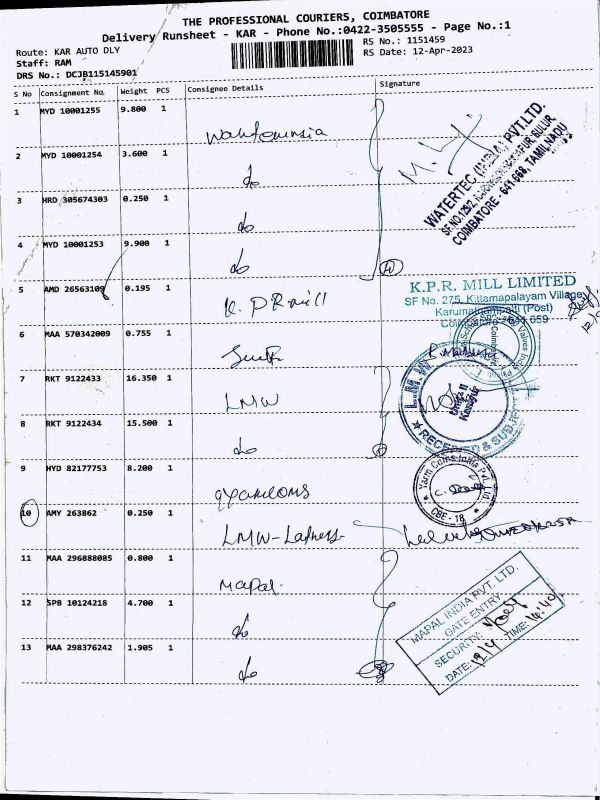 THE PROFESSIONAL COURIERS, COIMBATORE
Delivery Runsheet - KAR - Phone No.:0422-3505555 - Page No.:1
Route: KAR AUTO DLY
RS No.: 1151459
Staff: RAM
RS Date: 12-Apr-2023
DRS No.: DCJB115145901
S No Consignment No Weight PCS Consignee Details Signature
1 MYD 10001255 9.800 1
2 MYD 10001254 3.600 1 do
3 HRD 305674303 0.250 1 do
4 MYD 10001253 9.900 1 do
WATERTEC (INDIA) PVT.LTD.
COIMBATORE - 641 668, TAMILNADU
5 AMD 26563109 0.195 1 K. PR mill
K.P.R. MILL LIMITED
SF No. 275, Kittamapalayam Village
Karumathampatti (Post)
Coimbatore - 641 659
6 MAA 570342009 0.755 1
7 RKT 9122433 16.350 1 LMW
L.M.W
Unit II
RECEIVED & SUBJ
8 RKT 9122434 15.500 1 do
9 HYD 82177753 8.200 1
Yarn Coins India Pvt. Ltd.
CBE - 18
10 AMY 263862 0.250 1 LMW-
11 MAA 296888085 0.800 1 Mapal.
12 SPB 10124218 4.700 1 do
13 MAA 298376242 1.905 1 do
MAPAL INDIA PVT. LTD.
GATE ENTRY
SECURITY:
DATE: 12/4 TIME: 14:40